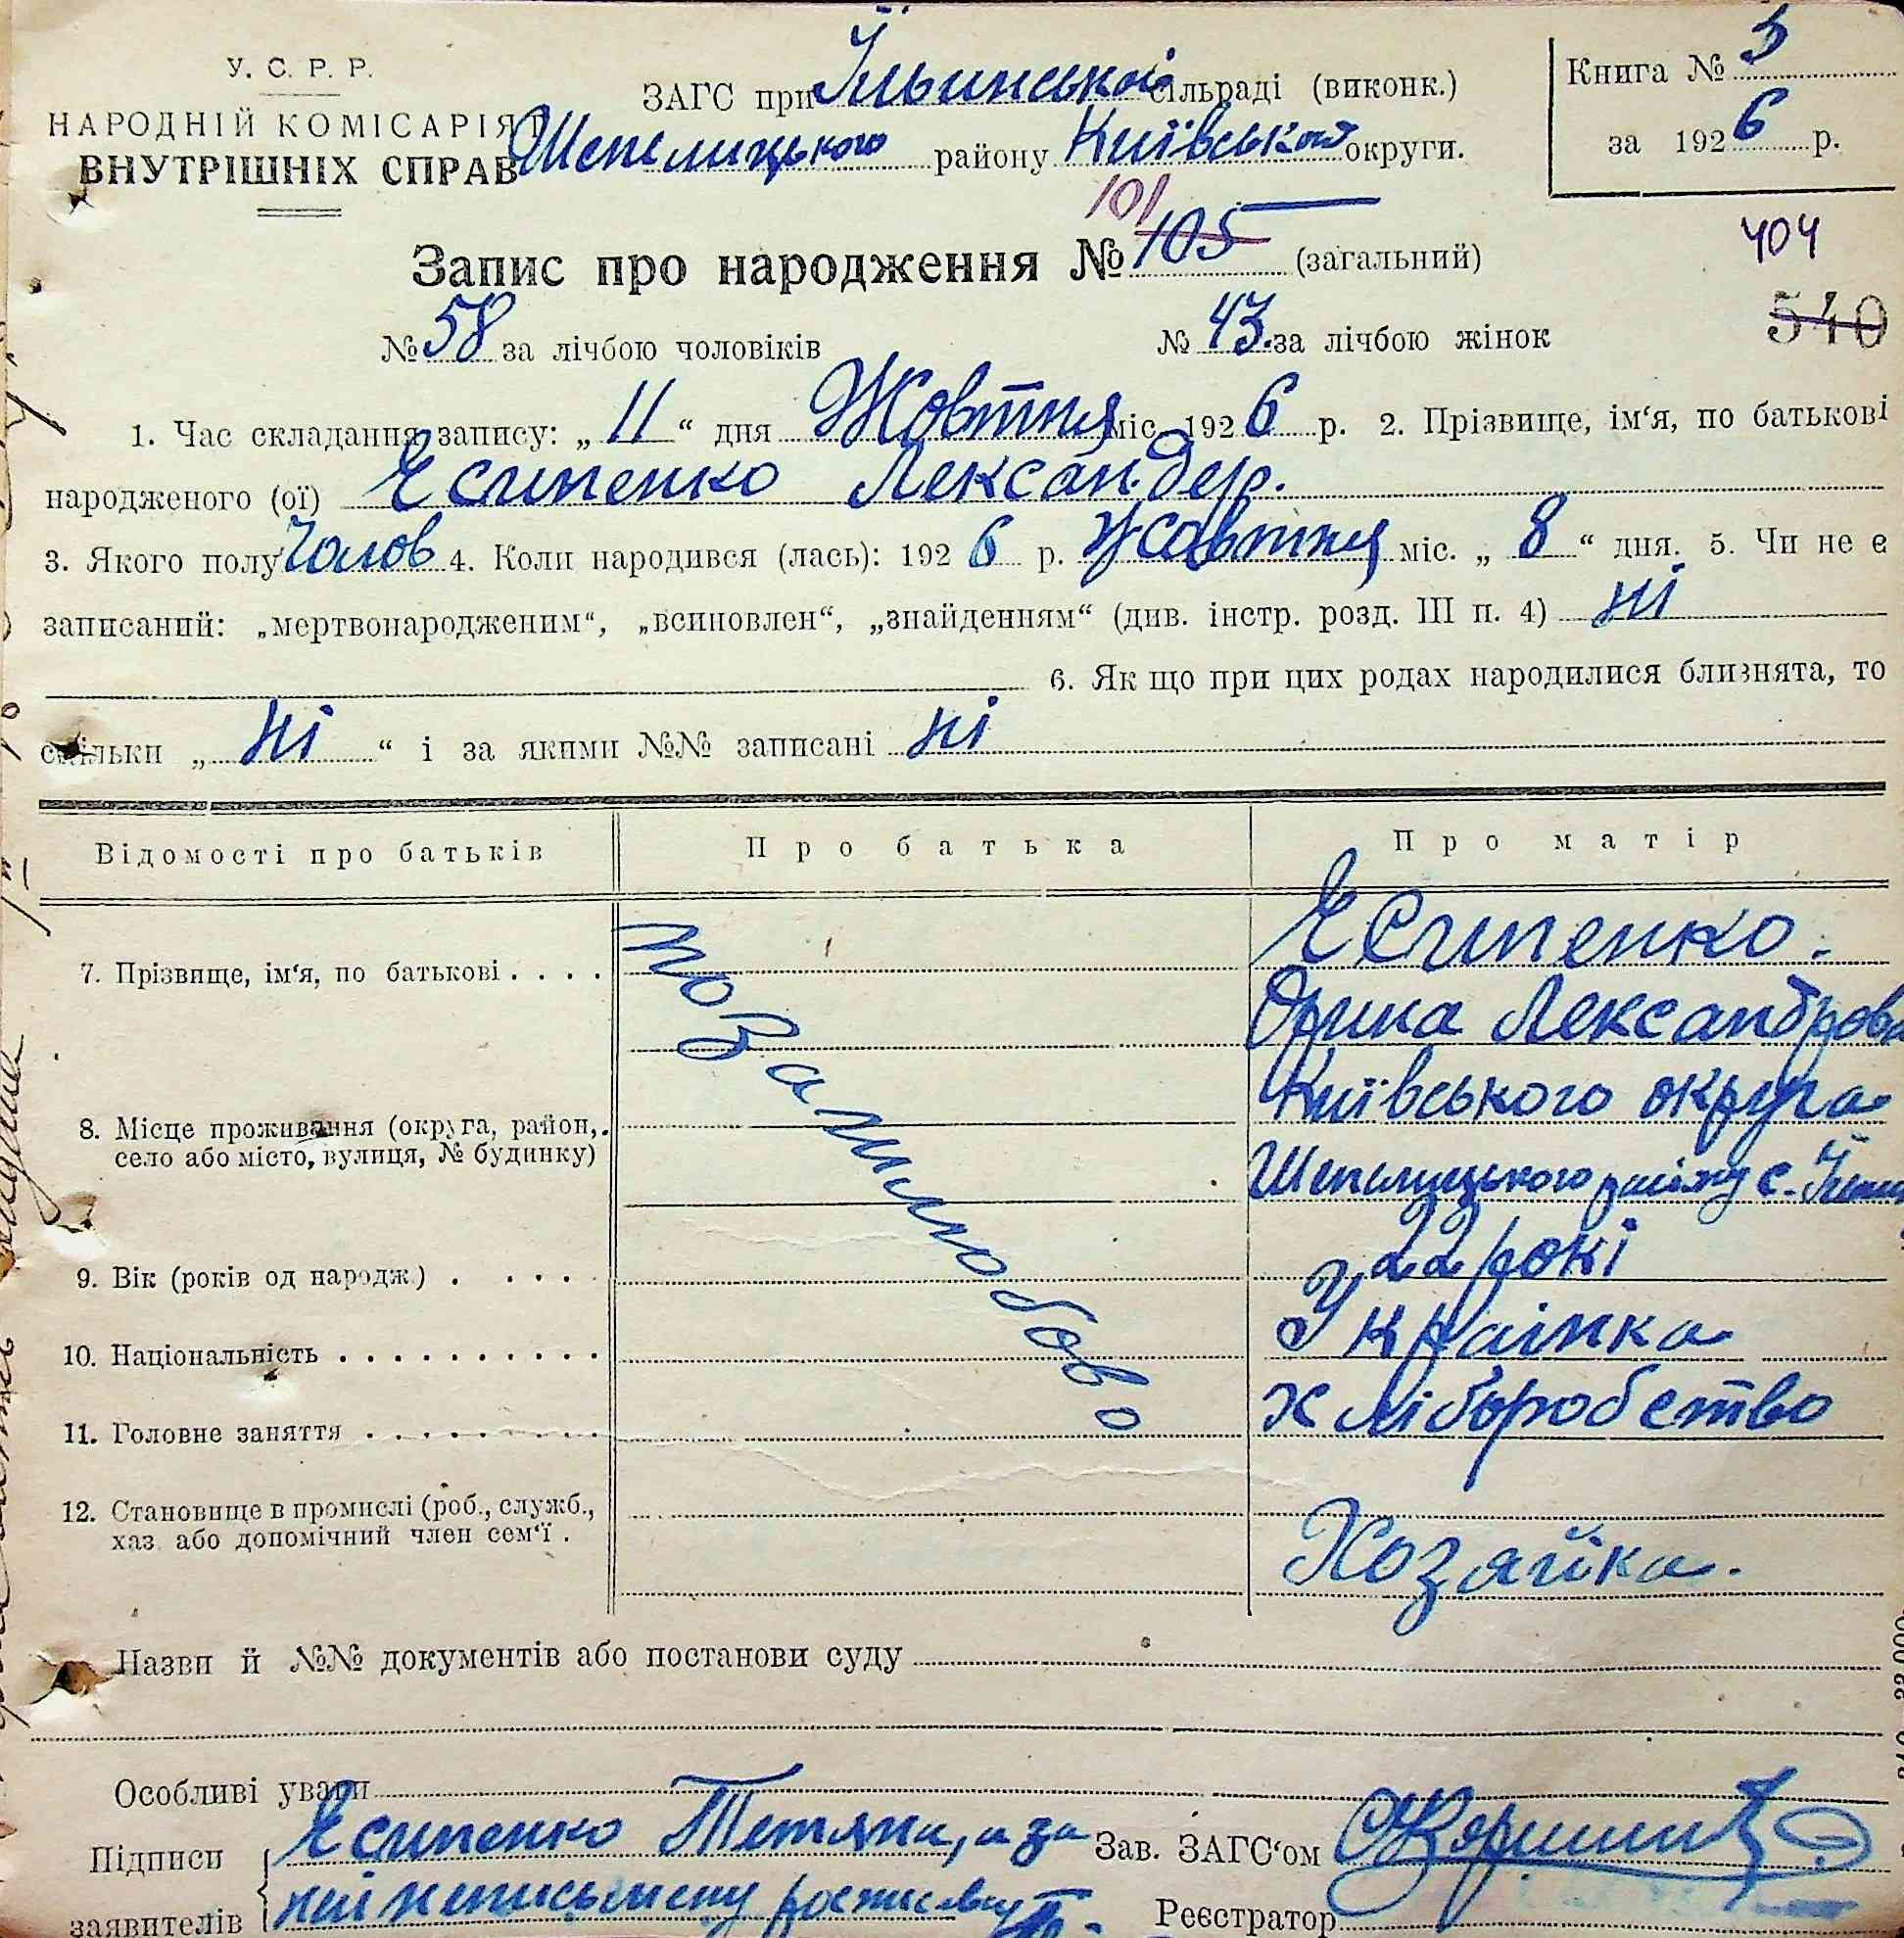 У. С. Р. Р.
НАРОДНІЙ КОМІСАРІЯТ
ВНУТРІШНІХ СПРАВ
ЗАГС при Ільинській сільраді (виконк.)
Шепелицького району Київської округи.
Книга № 3
за 1926 р.
101
Запис про народження № 105 (загальний)
404
№ 58 за лічбою чоловіків № 43. за лічбою жінок
540
1. Час складання запису: „ 11 “ дня Жовтня міс. 1926 р. 2. Прізвище, ім‘я, по батькові
народженого (ої) Єсипенко Лександер.
3. Якого полу Чолов 4. Коли народився (лась): 1926 р. Жовтня міс. „ 8 “ дня. 5. Чи не є
записаний: „мертвонародженим“, „всиновлен“, „знайденням“ (див. інстр. розд. III п. 4) ні
6. Як що при цих родах народилися близнята, то
скільки „ ні “ і за якими №№ записані ні
Відомості про батьків Про батька Про матір
7. Прізвище, ім‘я, по батькові . . . . Єсипенко.
Орина Лександровн
8. Місце проживання (округа, район, село або місто, вулиця, № будинку) Київського округа
Шепелицького району с.
позашлюбово
9. Вік (років од народж.) . . . . 22 рокі
10. Національність . . . . . . . . . . Українка
11. Головне заняття . . . . . . . . . хліборобство
12. Становище в промислі (роб., служб.,
хаз. або допомічний член сем‘ї . Хозяйка.
Назви й №№ документів або постанови суду
Особливі уваги
Підписи Єсипенко Тетяна, а за Зав. ЗАГС‘ом
заявителів неї неписьмену росписавсь Реєстратор